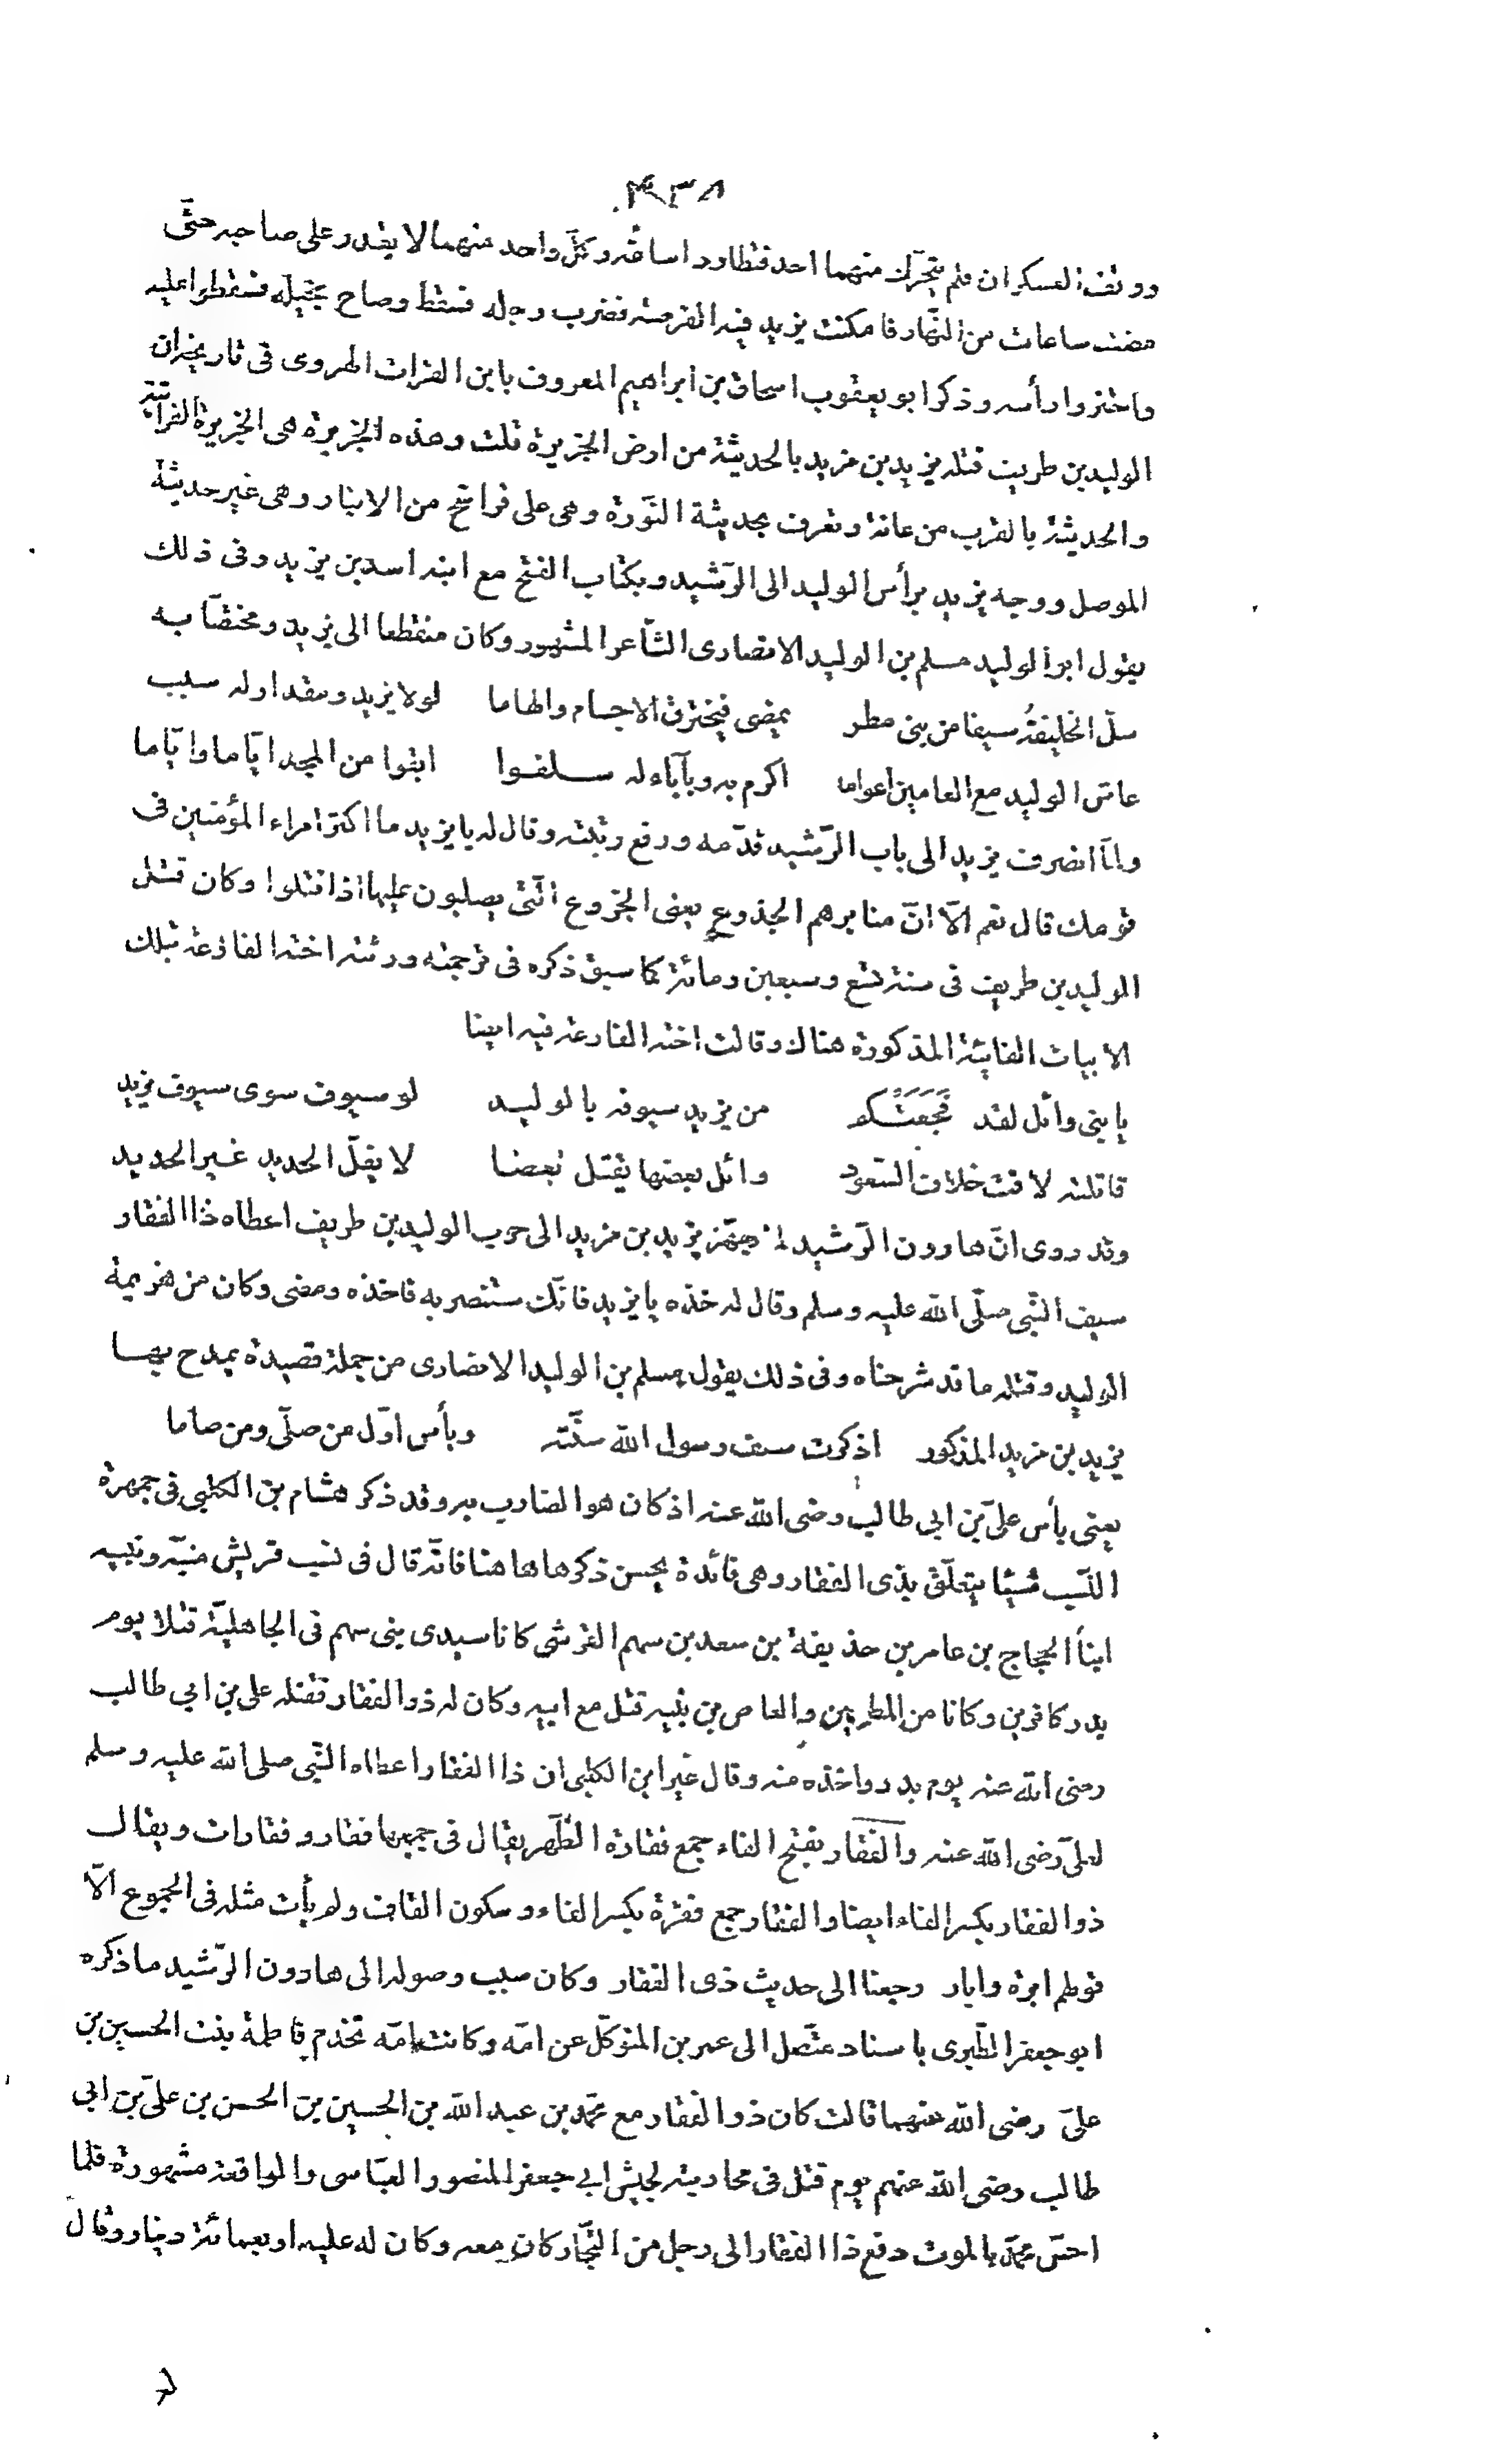 ٤٣٨
ووقف العسكران فلم يتحرّك منهما احد فتطاردا ساعة وكلّ واحد منهما لا يقدر على صاحبه حتّى
مضت ساعات من النّهار فامكنت يزيد فيه الفرصة فضرب رجله فسقط وصاح بخيله فسقطوا عليه
واحتزوا رأسه وذكر ابو يعقوب اسحاق بن ابراهيم المعروف بابن القراب الهروى فى تاريخه ان
الوليد بن طريف قتله يزيد بن مزيد بالحديثة من ارض الجزيرة قلت وهذه الجزيرة هى الجزيرة الفراتية
والحديثة بالقرب من عانة وتعرف بحديثة النّورة وهى على فراسخ من الانبار وهى غير حديثة
الموصل ووجه يزيد برأس الوليد الى الرّشيد وبكتاب الفتح مع ابنه اسد بن يزيد وفى ذلك
يقول ابو الوليد مسلم بن الوليد الانصارى الشّاعر المشهور وكان منقطعا الى يزيد ومختصّا به
سلّ الخليفةُ سيفا من بنى مطر يمضى فيخترق الاجسام والهاما لولا يزيد ومقدار له سبب
عاش الوليد مع العامين اعواما اكرم به وبآباء له سلفوا ابقوا من المجد ايّاما وايّاما
ولمّا انصرف يزيد الى باب الرّشيد قدّمه ورفع رتبته وقال له يا يزيد ما اكثر امراء المؤمنين فى
قومك قال نعم الّا انّ منابرهم الجذوع يعنى الجزوع الّتى يصلبون عليها اذا قتلوا وكان قتل
الوليد بن طريف فى سنة تسع وسبعين ومائة كما سبق ذكره فى ترجمته ورثته اخته الفارعة بتلك
الابيات الفائية المذكورة هناك وقالت اخته الفارعة فيه ايضا
يا بنى وائل لقد فَجَعَتْكُم من يزيد سيوفه بالوليد لو سيوف سوى سيوف يزيد
قاتلته لاقت خلاف السّعود وائل بعضها يقتل بعضا لا يفلّ الحديد غير الحديد
وقد روى انّ هارون الرّشيد لمّا جهّز يزيد بن مزيد الى حرب الوليد بن طريف اعطاه ذا الفقار
سيف النّبى صلّى اللّه عليه وسلم وقال له خذه يا يزيد فانّك ستنصر به فاخذه ومضى وكان من هزيمة
الوليد وقتله ما قد شرحناه وفى ذلك يقول مسلم بن الوليد الانصارى من جملة قصيدة يمدح بها
يزيد بن مزيد المذكور اذكرت سيف رسول اللّه سنّته وبأس اوّل من صلّى ومن صاما
يعنى بأس علىّ بن ابى طالب رضى اللّه عنه اذ كان هو الضارب به وقد ذكر هشام بن الكلبى فى جمهرة
النّسب شيئا يتعلّق بذى الفقار وهى فائدة يحسن ذكرها هاهنا فانّه قال فى نسب قريش منبّه ونبيه
ابنا الحجاج بن عامر بن حذيفة بن سعد بن سهم القرشى كانا سيدى بنى سهم فى الجاهليّة قتلا يوم
بدر كافرين وكانا من المطعمين والعاص بن نبيه قتل مع ابيه وكان له ذو الفقار فقتله على بن ابى طالب
رضى اللّه عنه يوم بدر واخذه منه وقال غير ابن الكلبى ان ذا الفقار اعطاه النّبى صلى اللّه عليه وسلم
لعلىّ رضى اللّه عنه والفقار بفتح الفاء جمع فقارة الظّهر يقال فى جمعها فقار وفقارات ويقال
ذو الفقار بكسر الفاء ايضا والفقار جمع فقرة بكسر الفاء وسكون القاف ولم يأت مثله فى الجموع الّا
قولهم ابرة وابار رجعنا الى حديث ذى الفقار وكان سبب وصوله الى هارون الرّشيد ما ذكره
ابو جعفر الطّبرى باسناد متّصل الى عمر بن المتوكّل عن امّه وكانت امّه تخدم فاطمة بنت الحسين بن
علىّ رضى اللّه عنهما قالت كان ذو الفقار مع محمّد بن عبد اللّه بن الحسين بن الحسن بن علىّ بن ابى
طالب رضى اللّه عنهم يوم قتل فى محاربته لجيش ابى جعفر المنصور العبّاسى والواقعة مشهورة فلما
احسّ محمّد بالموت دفع ذا الفقار الى رجل من التّجّار كان معه وكان له عليه اربعمائة دينار وقال